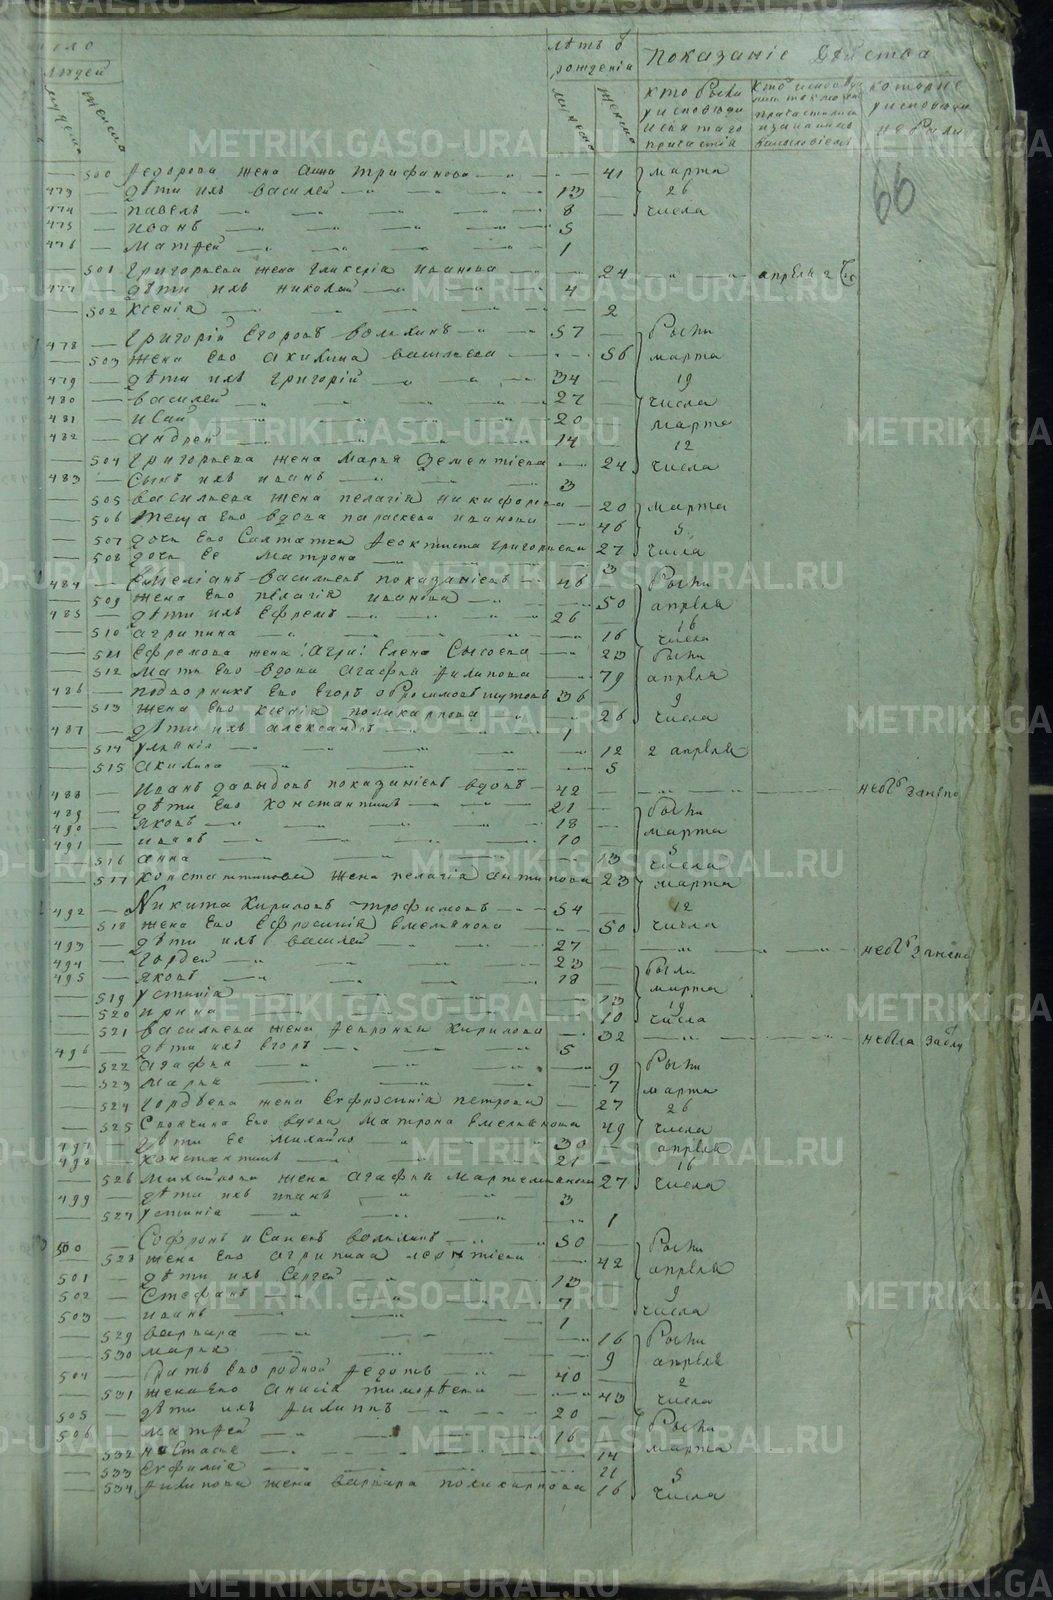 число людей
лѣтъ ѿ рожденія
показаніе Действа
мужеска
женска
мужеска
женска
кто были у исповеди и святаго причастія
которые у исповеди не были
66
500 Федорова жена Анна Трифанова 41 марта
473 дѣти ихъ Василей 13 26
474 Павелъ 8 числа
475 Иванъ 5
476 Матфей 1
501 Григорьева жена Гликерія Иванова 24 апреля 2
477 дѣти ихъ Николай 4
502 Ксенія 2
478 Григорій Егоровъ Волкинъ 57 были
503 жена Его Акилина Васильева 56 марта
479 дѣти ихъ Григорій 34 19
480 Василей 27 числа
481 Исай 20 марта
482 Андрей 14 12
504 Григорьева жена Марья Дементіева 24 числа
483 Сынъ ихъ Иванъ 3
505 Васильева жена Пелагія Никифорова 20 марта
506 теща Его вдова Параскева Иванова 46 5
507 дочь Его Салтатка Феоктиста Григорьева 27 числа
508 дочь Ее Матрона 3
484 Емеліанъ Васильевъ показаніевъ 46 были
509 жена Его Пелагія Иванова 50 апреля
485 дѣти ихъ Ефремъ 26 16
510 Агрипина 16 числа
511 Ефремова жена Елена Сысоева 23 были
512 Мать Его вдова Агафья Филипова 79 апреля
486 подворникъ Его Егоръ Обросимовъ 36 9
513 жена Его Ксенія Поликарпова 26 числа
487 дѣти ихъ Александръ 1
514 Улианія 12 2 апреля
515 Акилина 5
488 Иванъ Давыдовъ показаніевъ вдовъ 42
489 дѣти Его Константинъ 21 были
490 Яковъ 18 марта
491 Иванъ 10 5
516 Анна 13 числа
517 Константинова жена Пелагія Антипова 23 марта
492 Никита Кириловъ Трофимовъ 54 12
518 жена Его Ефросинія Емельянова 50 числа
493 дѣти ихъ Василей 27
494 Гордей 23 были
495 Яковъ 18 марта
519 Устинія 13 19
520 Ирина 10 числа
521 Васильева жена Февронья Кирилова 32
496 дѣти ихъ Егоръ 5
522 Агафья 9 были
523 Марья 7 марта
524 Гордѣева жена Ефросинія Петрова 27 26
525 Своячина Его вдова Матрона Емельянова 49 числа
497 дѣти Ее Михайло 30 апреля
498 Константинъ 21 16
526 Михайлова жена Агафья 27 числа
499 дѣти ихъ Иванъ 3
527 Устинія 1
500 Софронъ Исаевъ Волкинъ 50 были
528 жена Его Агрипина Леонтіева 42 апреля
501 дѣти ихъ Сергей 13 9
502 Стефанъ 7 числа
503 Иванъ 1
529 Варвара 16 были
530 Марья 9 апреля
504 Братъ Его родной Федотъ 40 2
531 жена Его Анисія Тимофѣева 43 числа
505 дѣти ихъ Филиппъ 20 были
506 Матфей 16 марта
532 Настасье 14
533 Евфимія 11 5
534 Филипова жена Варвара Поликарпова 16 числа
METRIKI.GASO-URAL.RU